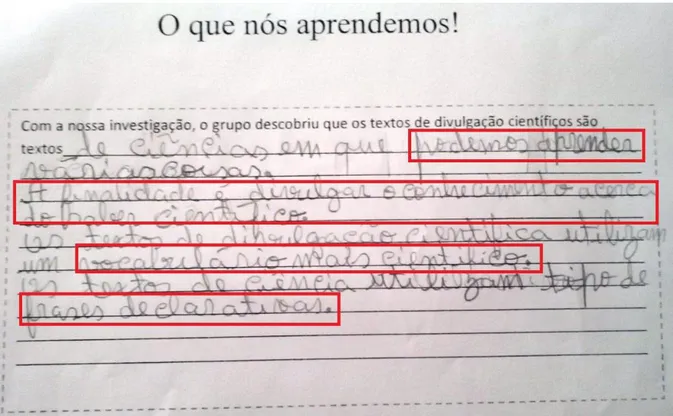 O que nós aprendemos!
Com a nossa investigação, o grupo descobriu que os textos de divulgação científicos são
textos de ciências em que podemos aprender
várias coisas.
A finalidade é divulgar o conhecimento acerca
do saber científico.
Os texto de divulgação científica utilizam
um vocabulário mais científico.
Os textos de ciência utilizam tipo de
frases declarativas.